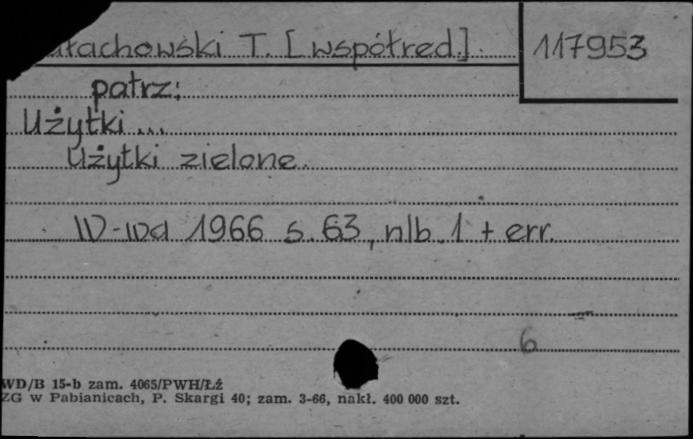 T. [współred.] 117953
patrz:
Użytki ...
Użytki zielone.
W-wa 1966 s. 63, nlb. 1 + err.
6
WD/B 15-b zam. 4065/PWH/Łź
ZG w Pabianicach, P. Skargi 40; zam. 3-66, nakł. 400 000 szt.